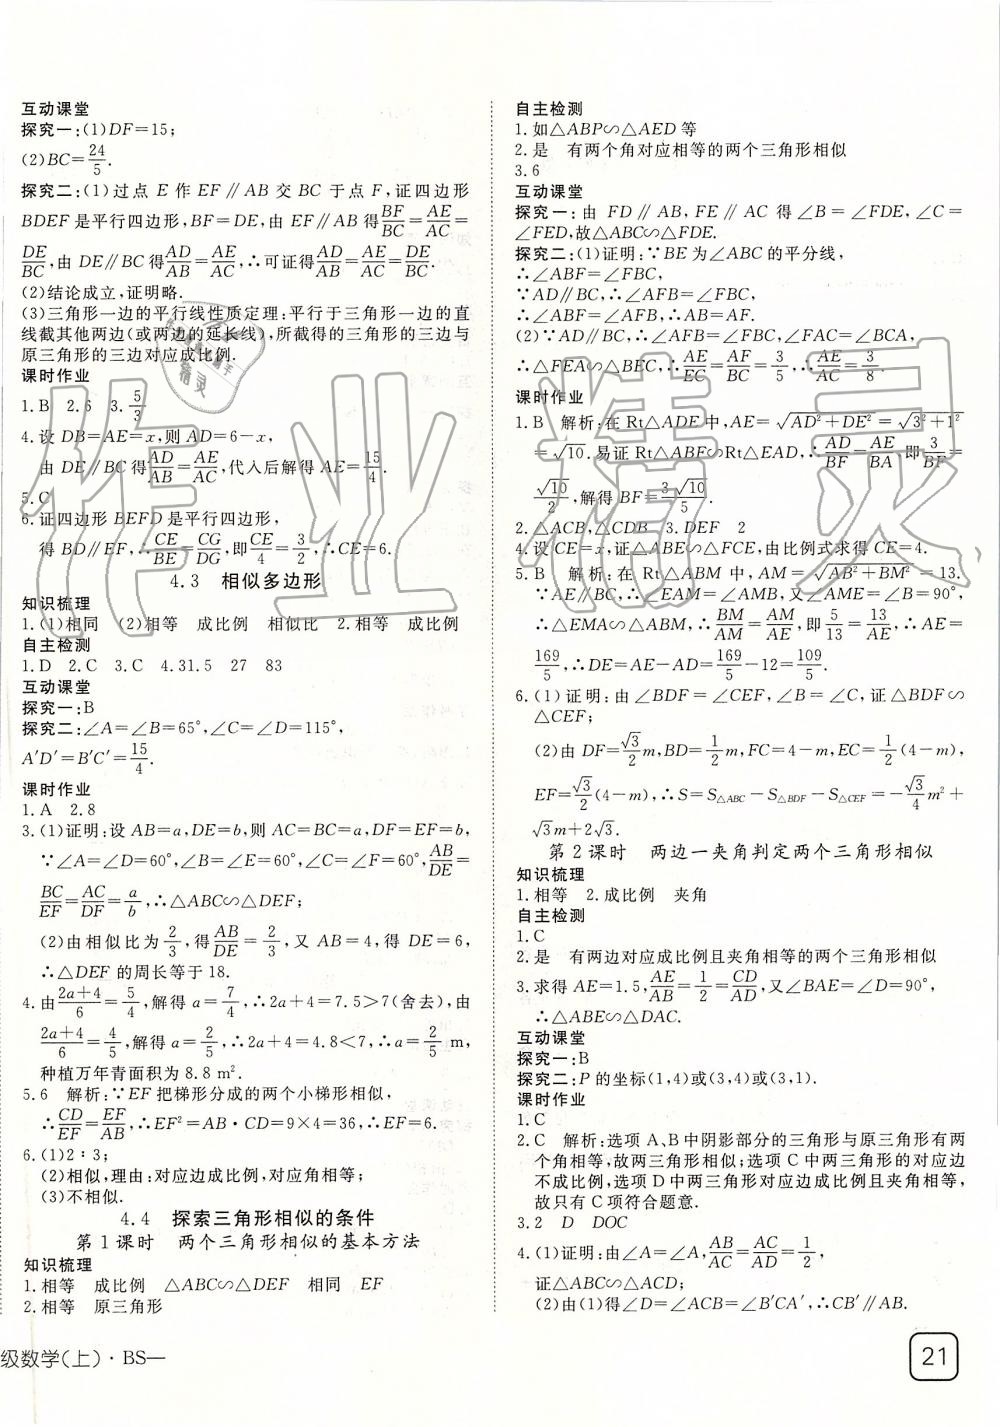 互动课堂
探究一:(1)DF=15;
(2)BC=24/5.
探究二:(1)过点 E 作 EF∥AB 交 BC 于点 F,证四边形
BDEF 是平行四边形,BF=DE,由 EF∥AB 得BF/BC=AE/AC=
DE/BC,由 DE∥BC 得AD/AB=AE/AC,∴可证得AD/AB=AE/AC=DE/BC.
(2)结论成立,证明略.
(3)三角形一边的平行线性质定理:平行于三角形一边的直
线截其他两边(或两边的延长线),所截得的三角形的三边与
原三角形的三边对应成比例.
课时作业
1.B 2.6 3.5/3
4.设 DB=AE=x,则 AD=6-x,
由 DE∥BC得AD/AB=AE/AC,代入后解得 AE=15/4.
5.C
6.证四边形 BEFD 是平行四边形,
得 BD∥EF,∴CE/BE=CG/DG,即CE/4=3/2,∴CE=6.
4.3 相似多边形
知识梳理
1.(1)相同 (2)相等 成比例 相似比 2.相等 成比例
自主检测
1.D 2.C 3.C 4.31.5 27 83
互动课堂
探究一:B
探究二:∠A=∠B=65°,∠C=∠D=115°,
A′D′=B′C′=15/4.
课时作业
1.A 2.8
3.(1)证明:设 AB=a,DE=b,则 AC=BC=a,DF=EF=b,
∵∠A=∠D=60°,∠B=∠E=60°,∠C=∠F=60°,AB/DE=
BC/EF=AC/DF=a/b,∴△ABC∽△DEF;
(2)由相似比为2/3,得AB/DE=2/3,又 AB=4,得 DE=6,
∴△DEF 的周长等于 18.
4.由2a+4/6=5/4,解得 a=7/4,∴2a+4=7.5>7(舍去),由
2a+4/6=4/5,解得 a=2/5,∴2a+4=4.8<7,∴a=2/5 m,
种植万年青面积为 8.8 m².
5.6 解析:∵EF 把梯形分成的两个小梯形相似,
∴CD/EF=EF/AB,∴EF²=AB·CD=9×4=36,∴EF=6.
6.(1)2∶3;
(2)相似,理由:对应边成比例,对应角相等;
(3)不相似.
4.4 探索三角形相似的条件
第 1 课时 两个三角形相似的基本方法
知识梳理
1.相等 成比例 △ABC∽△DEF 相同 EF
2.相等 原三角形
级数学(上)·BS—
自主检测
1.如△ABP∽△AED 等
2.是 有两个角对应相等的两个三角形相似
3.6
互动课堂
探究一:由 FD∥AB,FE∥AC 得∠B=∠FDE,∠C=
∠FED,故△ABC∽△FDE.
探究二:(1)证明:∵BE 为∠ABC 的平分线,
∴∠ABF=∠FBC.
∵AD∥BC,∴∠AFB=∠FBC,
∴∠ABF=∠AFB,∴AB=AF.
(2)∵AD∥BC,∴∠AFB=∠FBC,∠FAC=∠BCA,
∴△FEA∽△BEC,∴AE/EC=AF/BC=3/5,∴AE/AC=3/8.
课时作业
1.B 解析:在 Rt△ADE 中,AE=√AD²+DE²=√3²+1²
=√10.易证 Rt△ABF∽Rt△EAD,∴AD/BF=AE/BA,即3/BF=
√10/2,解得 BF=3√10/5.
2.△ACB,△CDB 3.DEF 2
4.设 CE=x,证△ABE∽△FCE,由比例式求得 CE=4.
5.B 解析:在 Rt△ABM 中,AM=√AB²+BM²=13.
∵AE∥BC,∴∠EAM=∠AMB,又∠AME=∠B=90°,
∴△EMA∽△ABM,∴BM/AM=AM/AE,即5/13=13/AE,∴AE=
169/5,∴DE=AE-AD=169/5-12=109/5.
6.(1)证明:由∠BDF=∠CEF,∠B=∠C,证△BDF∽
△CEF;
(2)由 DF=√3/2m,BD=1/2m,FC=4-m,EC=1/2(4-m),
EF=√3/2(4-m),∴S=S△ABC-S△BDF-S△CEF=-√3/4m²+
√3m+2√3.
第 2 课时 两边一夹角判定两个三角形相似
知识梳理
1.相等 2.成比例 夹角
自主检测
1.C
2.是 有两边对应成比例且夹角相等的两个三角形相似
3.求得 AE=1.5,AE/AB=1/2=CD/AD,又∠BAE=∠D=90°,
∴△ABE∽△DAC.
互动课堂
探究一:B
探究二:P 的坐标(1,4)或(3,4)或(3,1).
课时作业
1.C
2.C 解析:选项 A、B 中阴影部分的三角形与原三角形有两
个角相等,故两三角形相似;选项 C 中两三角形的对应边
不成比例,选项 D 中两三角形对应边成比例且夹角相等,
故只有 C 项符合题意.
3.2 D DOC
4.(1)证明:由∠A=∠A,AB/AC=AC/AD=1/2,
证△ABC∽△ACD;
(2)由(1)得∠D=∠ACB=∠B′CA′,∴CB′∥AB.
21
作业精灵